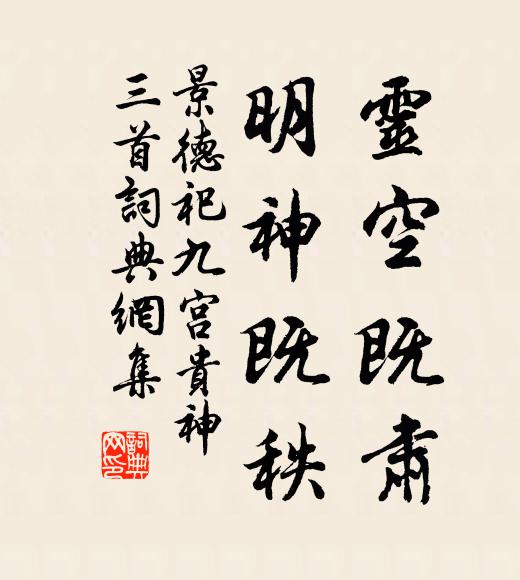 靈空既肅
明神既秩
景德祀九宮貴神
三首詞典網集
詞典
网印